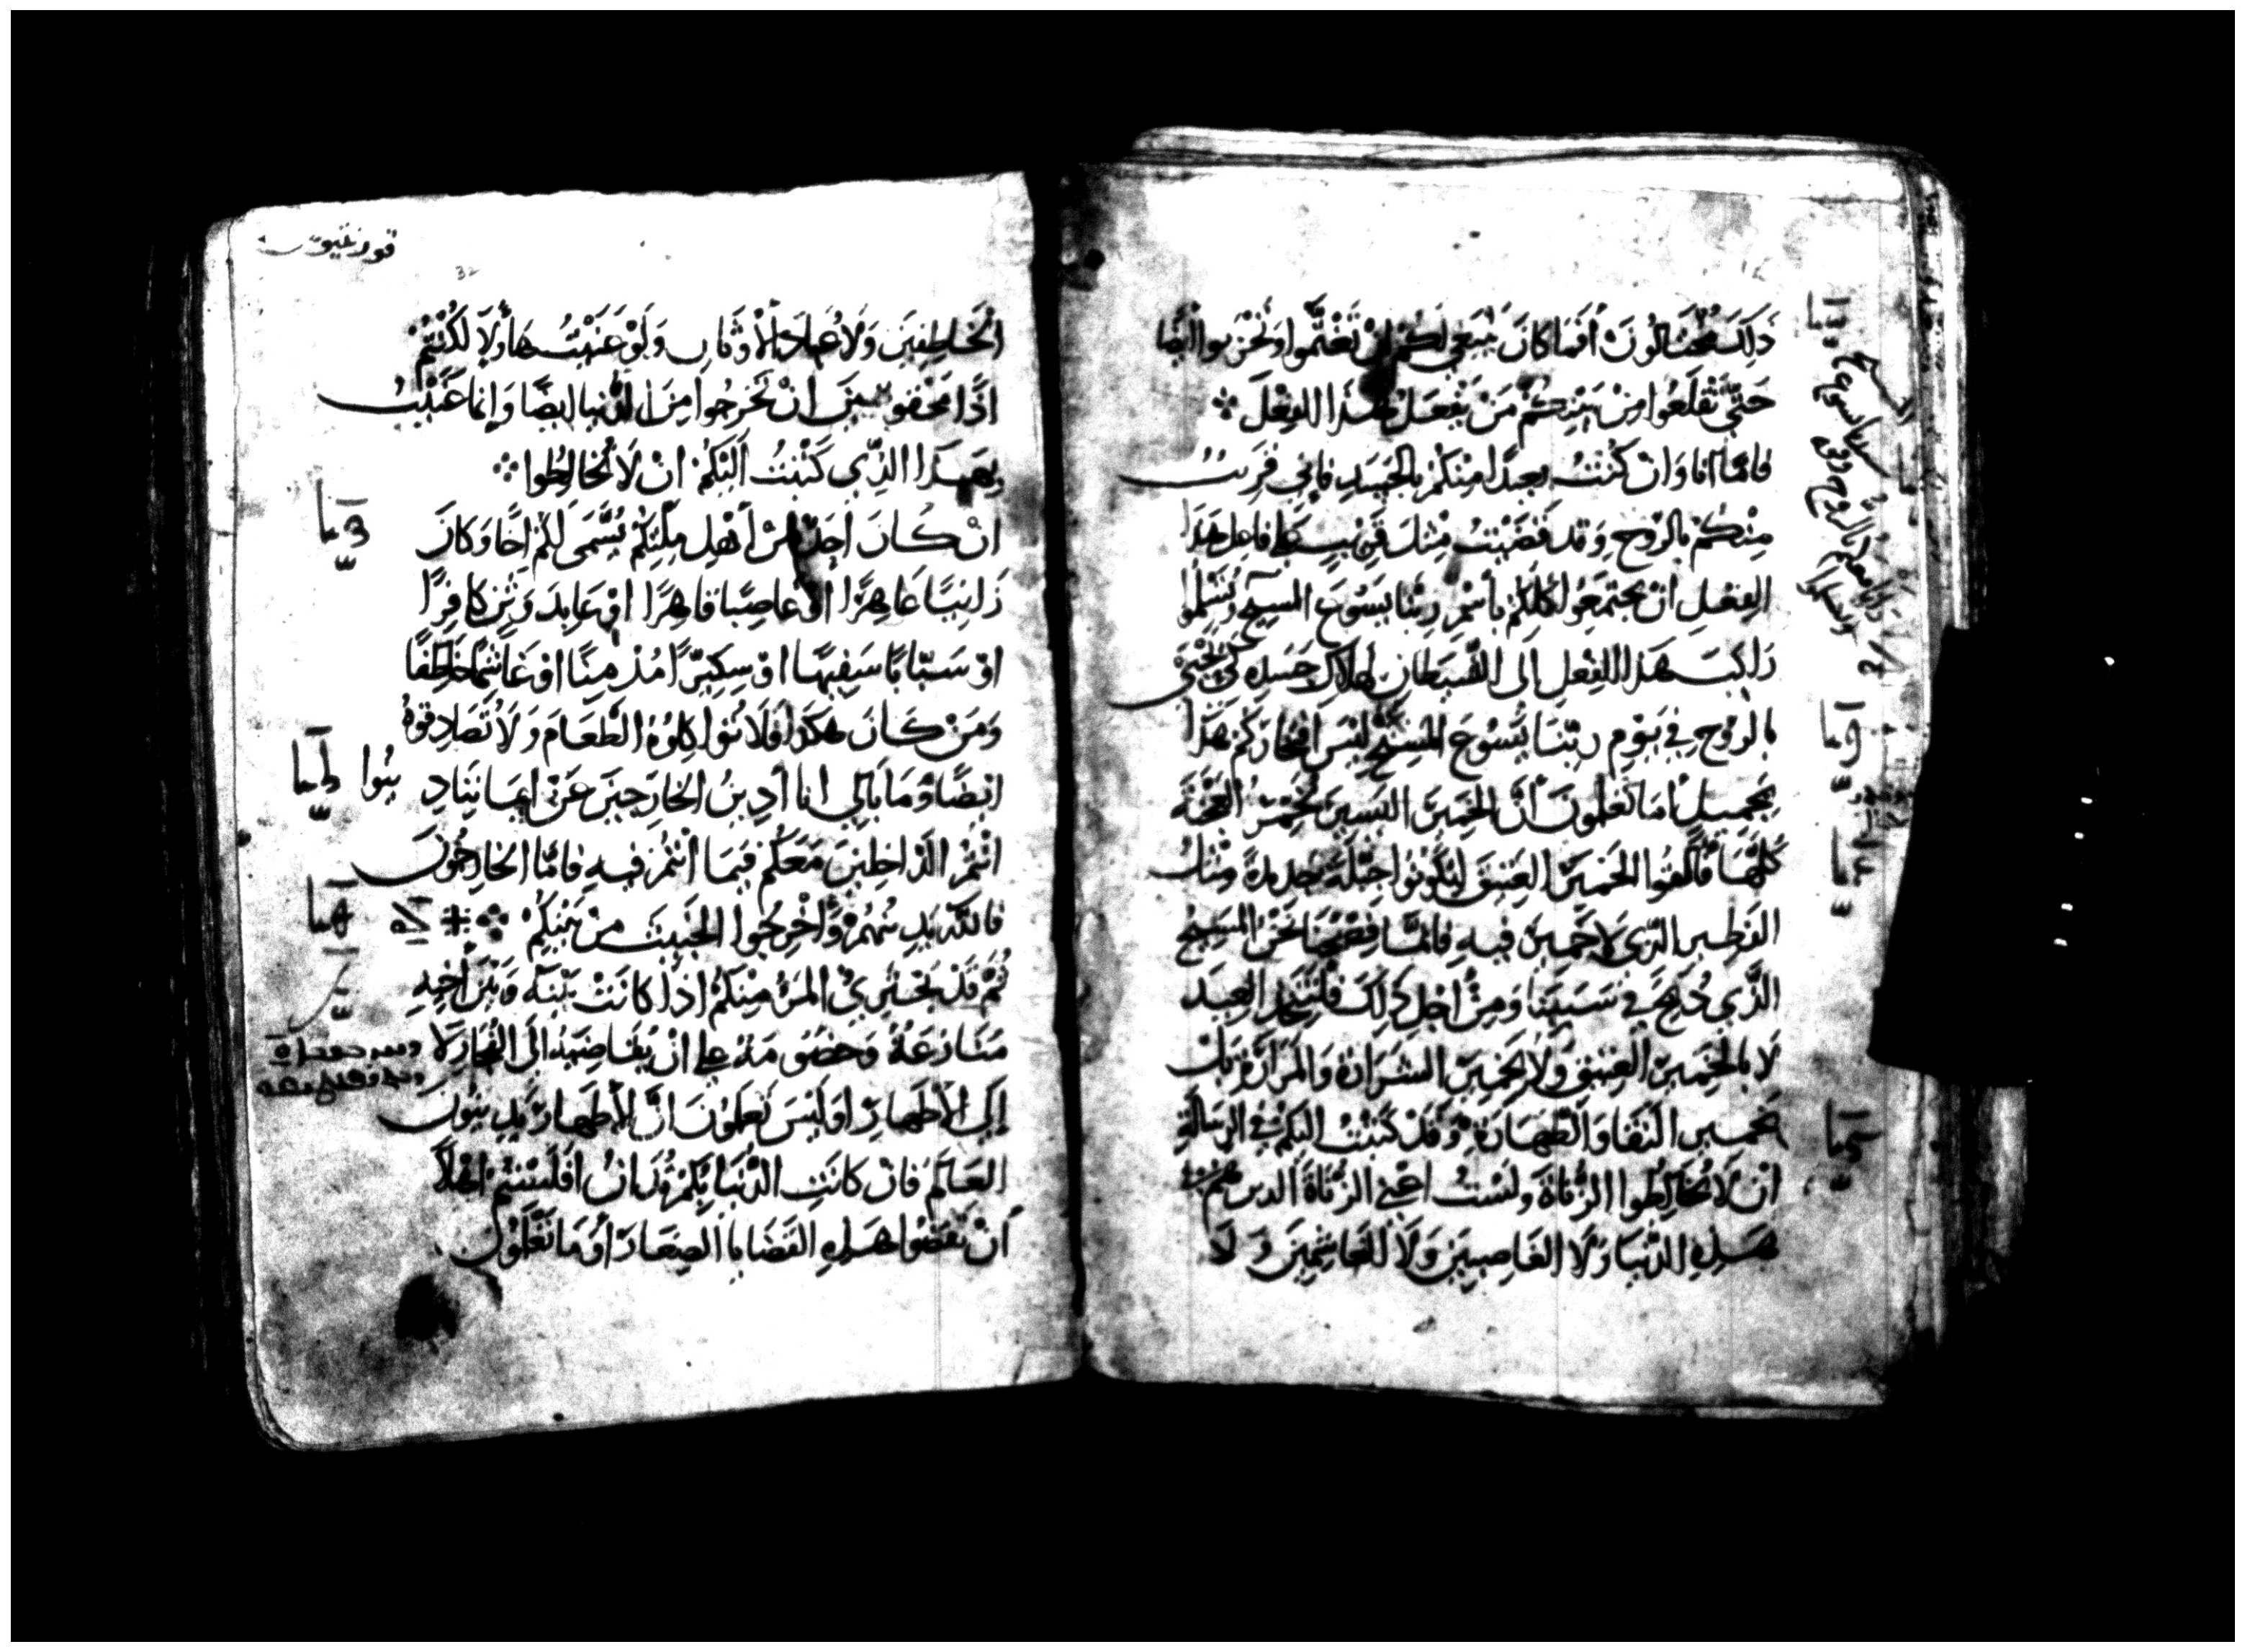 ذَلِكَ مُختَالُونَ أفَما كانَ يَنبَغي لَكُمْ اِنْ تَغْتَمُّوا وَتَحْزَنوا اَيضًا
حَتَّى تَقْلَعُوا مِنْ بَيْنِكُمْ مَنْ يَفْعَلْ هَذَا الفِعْلَ
فامَّا اَنا وَانْ كُنْتُ بعيدًا مِنْكمْ بالجَسَدِ فاِني قرِيبٌ
مِنْكُمْ بالرّوحِ وَقد قَضَيْتُ مِثلَ قَرِيْبٍ عَلَى فاعِل هَذَا
الفِعْلِ انْ تجتمعُوا كلكمْ بِأسْمِ رَبِّنا يَسُوعَ المسيح وتُسَلِّموا
رَاكبَ هَذا الفِعْلِ اِلَى الشَّيطَانِ لهَلاك جَسَدِه كَي يَحْيَى
بالرّوُحِ فِي يَوْمِ رَبِّنَا يَسُوعَ المَسِيْح لَيْسَ افتِخَارَكُم هَذَا
بجَميلٍ اَمَا تَعْلمونَ أنَّ الخَمِيرَ اليَسِيرَ يُخَمِّرُ العَجْنَةَ
كُلَّهَا فَألقُوا الخَمِيرَ العَتِيقَ لتَكُونُوا جَبْلَةً جَدِيدَةً مِثلَ
الفَطِيرِ الذي لا خَمِيرَ فيهِ فَانَّمَا فِصْحُنَا نَحْنُ المَسِيح
الَّذي ذُبِحَ في سَبَبِنَا وَمِنْ اَجْلِ ذَلِكَ فَلْنَتَّخِذ العِيدَ
لَا بالخَمِيرِ العتِيقِ وَلَا بخَمِيرِ الشَرَارَةِ وَالمَرَارَةِ بَلْ
بخَمِيرِ النَّقَا وَالطَّهَارَةِ وَقَدْ كَتَبْتُ اليْكُمْ في الرسَالَةِ
انْ لَا تُخَالِطُوا الزُّنَاةَ وَلَسْتُ اعْني الزُّنَاةَ الذين هُم في
هَذِهِ الدُّنيَا وَلَا الغَاصِبِيَن وَلَا للغَاشِمِيَن وَلَا
الخَاطِفِيَن وَلَا عُبَّادَ الأوْثَانِ وَلَوْ عَنَيْتُ هَاؤُلَآ لَكُنْتُمْ
اذًا محقوقينَ انْ تخرجُوا مِنَ الدُّنيا ايضًا وَاِنما عَنَيْتُ
بِهَذا الذِّي كَتَبْتُ اِلَيْكُمْ انْ لَا تُخَالِطُوا
انْ كَانَ اَحَدٌ مِنْ أهْلِ مِلَّتِكُمْ يُسَّمَى لَكُمْ اخًا وَكانَ
زَانِيًا عَاهِرًا اوْ غاصِبًا قاهِرًا اوْ عَابدَ وَثنٍ كافِرًا
اوْ سَبَّابًا سَفِيهًا اوْ سِكِيرًا مُدْمِنًا اوْ غَاشِمًا خَاطِفًا
وَمَنْ كَانَ هَكذا فَلَا تُوَاكِلُوْهُ الطَّعَامَ وَلَا تُصَادِقوهُ
ايْضًا وَمَا بَالي انا أدِينُ الخَارَجِينَ عَنْ اِيمَانِنَا دِينُوا
انْتُمْ الدَّاخِلينَ مَعَكُمْ فيمَا انْتُمْ فيهِ فامَّا الخَارِجُونَ
فاللَّه يَدِيْنُهُمْ وَأخْرِجُوا الخَبِيثَ مِنْ بَيْنِكُمْ
ثُمَّ قَدْ يَجْتَرِئُ المَرْءُ مِنْكُمْ اذَا كَانَتْ بَيْنَه وَبَيْنَ أخِيهِ
مُنَازَعَةٌ وَخصُومَة عَلى انْ يُقَاضيَهُ اِلَى الفُجَّارِ لَا
اِلَى الأطْهَارِ اوَلَيْسَ تَعْلَمُونَ اَنَّ الأطْهَارَ يَدِينُونَ
العَالَمَ فَانْ كَانَتِ الدُّنْيَا بِكُمْ تُدَانُ افَلَسْتُمْ اهْلًا
اَنْ تَقضُوا هَذِهِ القَضَايا الصِغَارَ أوَمَا تَعْلَمُونَ